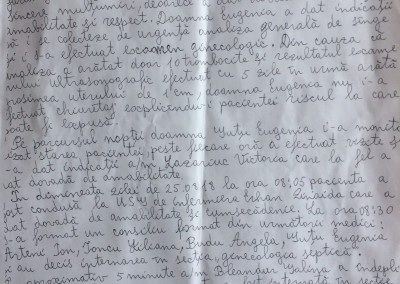 sincere mulțumiri, deoarece
amabilitate și respect. Doamna Eugenia a dat indicații
să i se colecteze de urgență analiza generală de sînge
și i-a efectuat examen ginecologic. Din cauza că
analiza a arătat doar 10 trombocite și rezultatul exame
nului ultrasonografic efectuat cu 5 zile în urmă arată
grosimea uterului de 1 cm, doamna Eugenia nu i-a
efectuat chiuretaj explicîndu-i pacientei riscul la care
poate fi expusă.
Pe parcursul nopții doamna Țuțu Eugenia i-a monito
rizat starea pacientei, peste fiecare oră a efectuat vizite și
i-a dat indicații a/m Lazariuc Victoria care la fel a
dat dovadă de amabilitate.
În dimineața zilei de 25.09.18 la ora 08:05 pacienta a
fost condusă la USG de infermiera Erhan Zinaida care a
dat dovadă de amabilitate și cumsecădenie. La ora 08:30
s-a format un consiliu format din următorii medici:
Arteni Ion, Joncu Ileana, Budu Angela, Țuțu Eugenia
și au decis internarea în secția „ginecologia septică".
aproximativ 5 minute a/m Bleandur Galina a îndepli
fost internată în secție